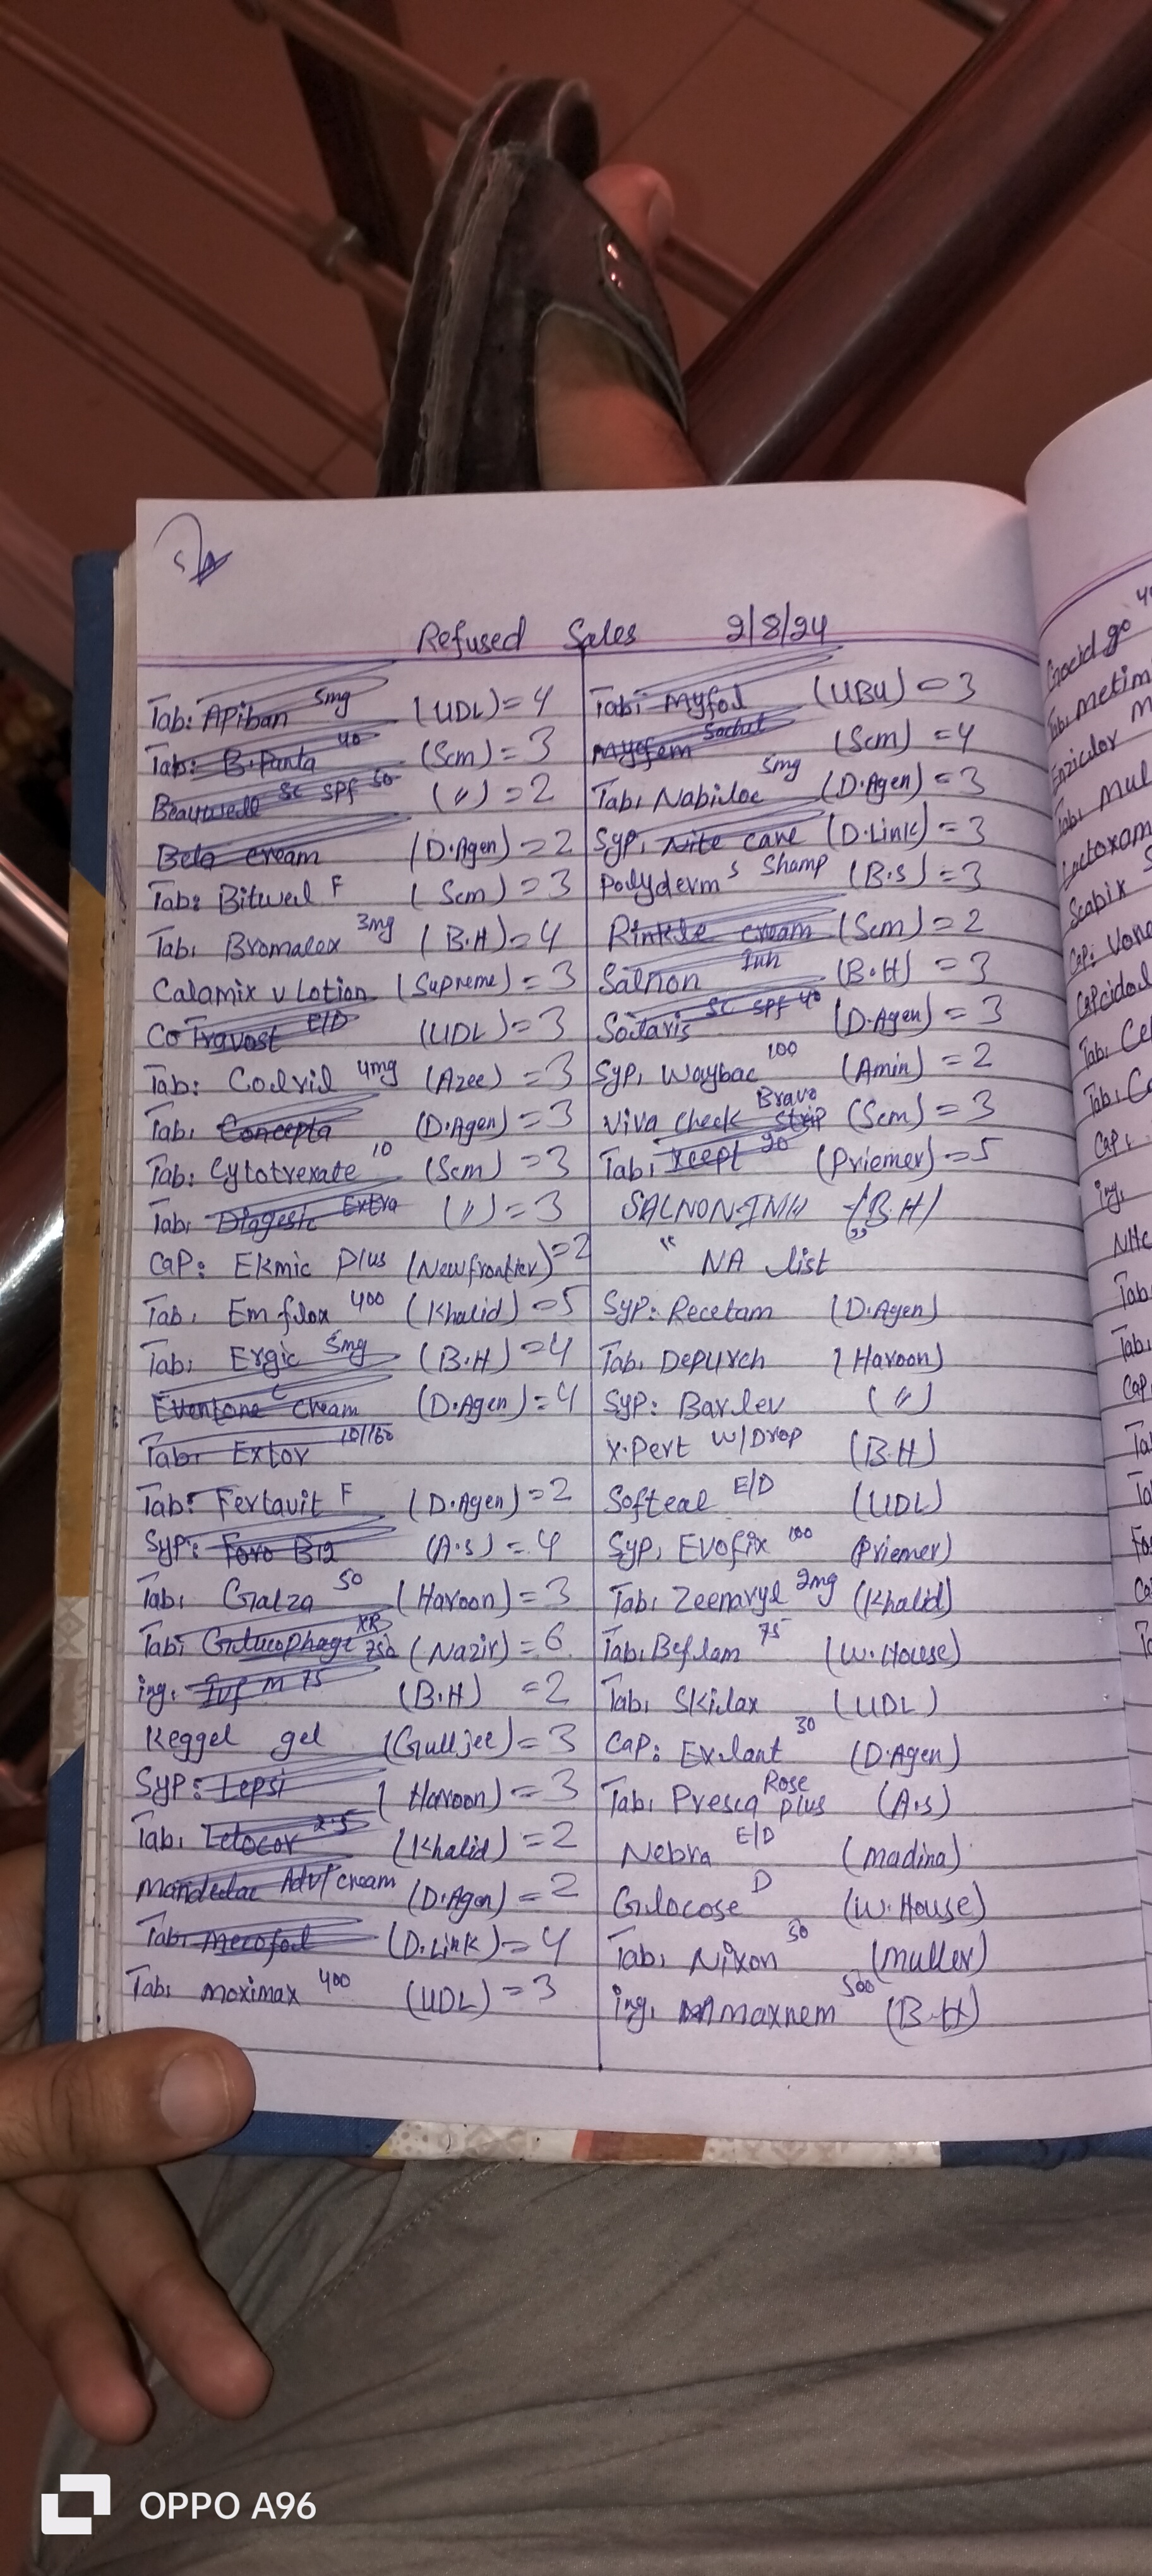 Refused Sales 2/8/24
Tab: Apiban 5mg (UDL) = 4
Tab: B.Panta 40 (Scm) = 3
Beautwell SC SPF 50 (〃) = 2
Bela cream (D.Agen) = 2
Tab: Bitwel F (Scm) = 3
Tab: Bromalex 3mg (B.H) = 4
Calamix v Lotion (Supreme) = 3
Co Travost E/D (UDL) = 3
Tab: Codvil 4mg (Azee) = 3
Tab: Concepta (D.Agen) = 3
Tab: Cytotrexate 10 (Scm) = 3
Tab: Diagesic Extra (〃) = 3
Cap: Ekmic Plus (Newfrontier) = 2
Tab: Em flox 400 (Khalid) = 5
Tab: Ergic 5mg (B.H) = 4
Eventone C Cream (D.Agen) = 4
Tab: Extor 10/160
Tab: Fertavit F (D.Agen) = 2
Syp: Fero B12 (A.S) = 4
Tab: Galza 50 (Haroon) = 3
Tab: Glucophage XR 750 (Nazir) = 6
inj: Ivf M 75 (B.H) = 2
Keggel gel (Gulljee) = 3
Syp: Lepsi (Haroon) = 3
Tab: Letocor 2.5 (Khalid) = 2
Mandelac Adv/cream (D.Agen) = 2
Tab: Mecofol (D.Link) = 4
Tab: Moximax 400 (UDL) = 3
Tab: Myfol (UBU) = 3
Myofem Sachet (Scm) = 4
Tab: Nabiloc 5mg (D.Agen) = 3
Syp: Nite care (D.Link) = 3
Polyderm S Shamp (B.S) = 3
Rinkle cream (Scm) = 2
Salnon Inh (B.H) = 3
Solaris SC SPF 40 (D.Agen) = 3
Syp: Waybac 100 (Amin) = 2
Viva Check Bravo Strip (Scm) = 3
Tab: Xcept 20 (Priemer) = 5
SALNON-INH (B.H)
"NA list"
Syp: Recetam (D.Agen)
Tab: Depurch (Haroon)
Syp: Barlev (〃)
X.Pert W/Drop (B.H)
Softeal E/D (UDL)
Syp: Evofix 100 (Priemer)
Tab: Zeenaryl 2mg (Khalid)
Tab: Beflam 75 (W.House)
Tab: Skilax (UDL)
Cap: Exlant 30 (D.Agen)
Tab: Presca Rose plus (A.S)
Nebra E/D (Madina)
Gulocose D (W.House)
Tab: Nixon 50 (Muller)
inj: Maxnem 500 (B.H)
Tab: Metim
Enziclor M
Tab: Mul
Lactoxam
Scabix S
Cap:
Tab:
OPPO A96